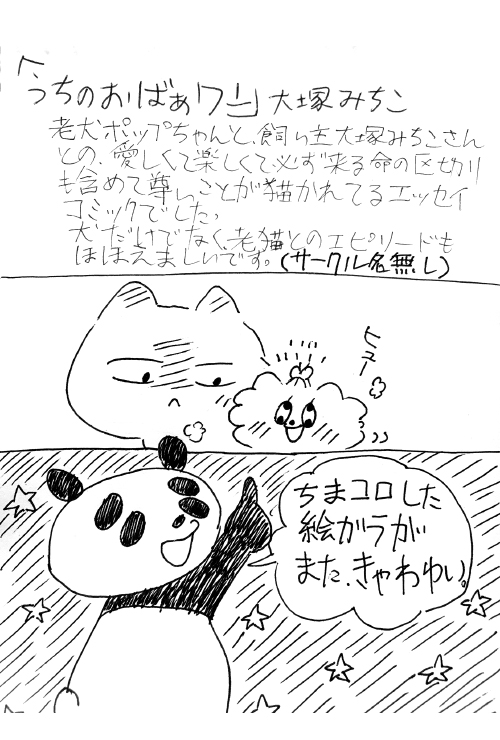 「うちのおばぁワン」大塚みちこ
老犬ポップちゃんと、飼い主大塚みちこさん
との、愛しくて楽しくて必ず来る命の区切り
も含めて尊いことが描かれてるエッセイ
コミックでした。
犬だけでなく、老猫とのエピソードも
ほほえましいです。(サークル名無し)
ヒュー
ちまコロした
絵ガラが
また、きゃわゆい。